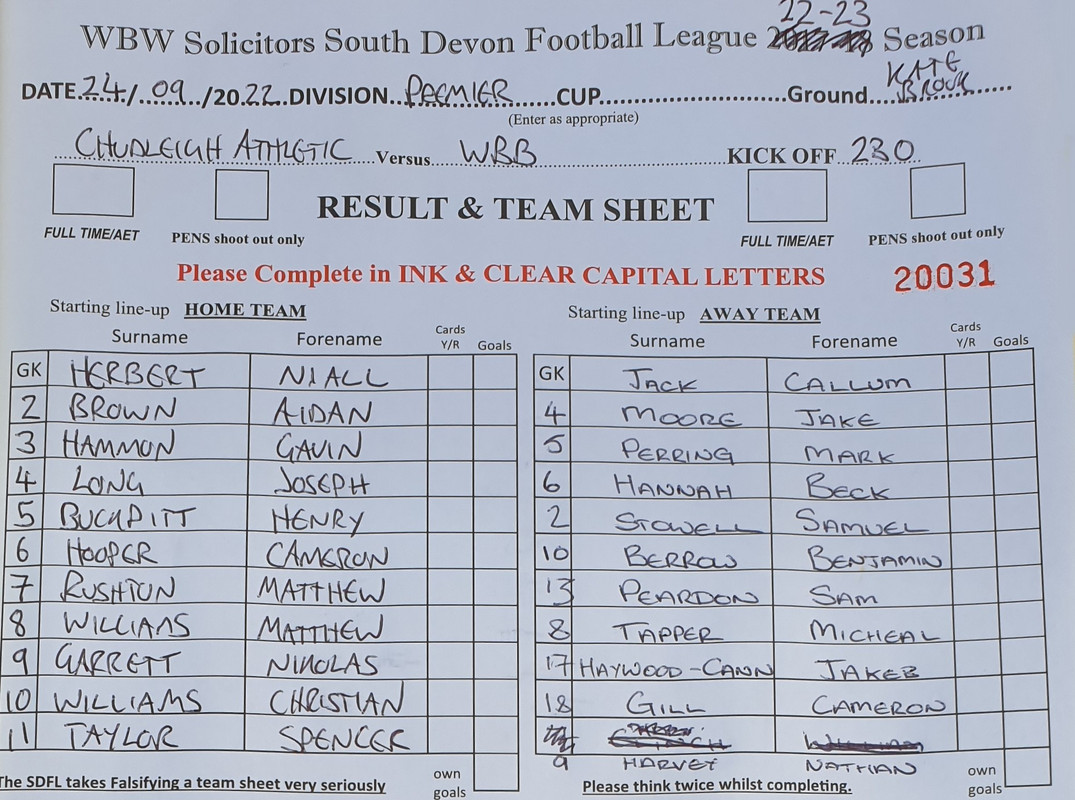 22-23
WBW Solicitors South Devon Football League Season
DATE 24/09/2022 DIVISION PREMIER CUP Ground KATE BROOK
(Enter as appropriate)
CHUDLEIGH ATHLETIC Versus WBB KICK OFF 230
RESULT & TEAM SHEET
FULL TIME/AET PENS shoot out only FULL TIME/AET PENS shoot out only
Please Complete in INK & CLEAR CAPITAL LETTERS 20031
Starting line-up HOME TEAM Starting line-up AWAY TEAM
Surname Forename Cards Y/R Goals Surname Forename Cards Y/R Goals
GK HERBERT NIALL GK JACK CALLUM
2 BROWN AIDAN 4 MOORE JAKE
3 HAMMON GAVIN 5 PERRING MARK
4 LONG JOSEPH 6 HANNAH BECK
5 BUCKPITT HENRY 2 STOWELL SAMUEL
6 HOOPER CAMERON 10 BERROW BENJAMIN
7 RUSHTON MATTHEW 13 PEARDON SAM
8 WILLIAMS MATTHEW 8 TAPPER MICHEAL
9 GARRETT NIKOLAS 17 HAYWOOD-CANN JAKEB
10 WILLIAMS CHRISTIAN 18 GILL CAMERON
11 TAYLOR SPENCER
9 HARVEY NATHAN
The SDFL takes Falsifying a team sheet very seriously own goals Please think twice whilst completing. own goals